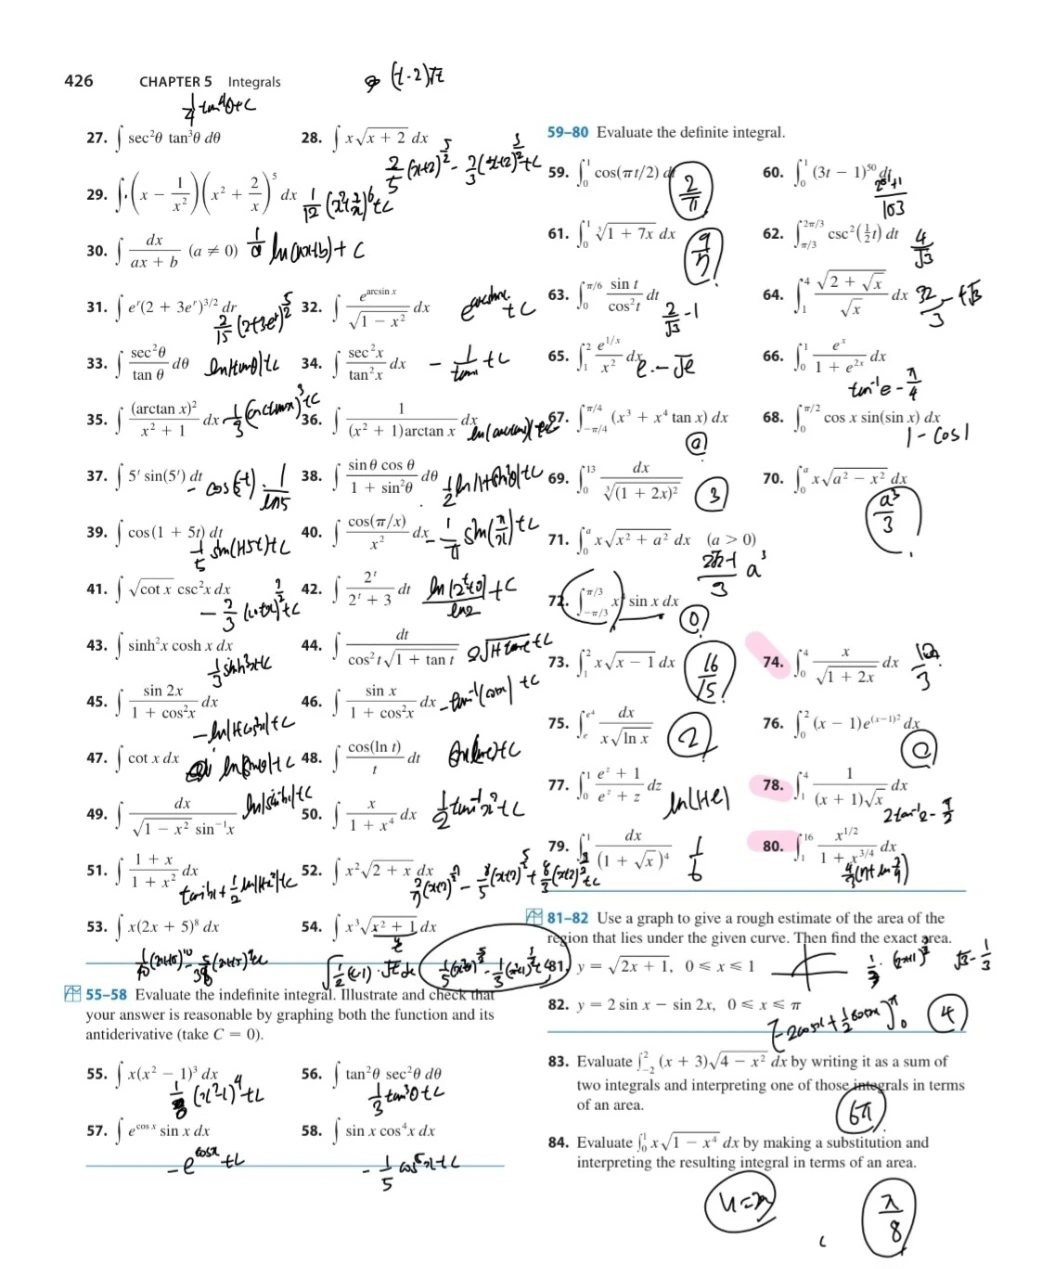 426 CHAPTER 5 Integrals
(t-2)√t
1/4 tan⁴θ+C
27. ∫ sec²θ tan³θ dθ
28. ∫ x√(x + 2) dx
2/5 (x+2)^(5/2) -
29. ∫ (x − 1/x²)(x² + 2/x)⁵ dx
30. ∫ dx/(ax + b) (a ≠ 0)
ln(ax+b)+ C
31. ∫ eʳ(2 + 3eʳ)^(3/2) dr
2/15 (2+3eʳ)^(5/2)
32. ∫ e^(arcsin x)/√(1 − x²) dx
+C
33. ∫ sec²θ/tan θ dθ
ln|tanθ|+C
34. ∫ sec²x/tan²x dx
- 1/tanx +C
35. ∫ (arctan x)²/(x² + 1) dx
1/3 (arctanx)³+C
36. ∫ 1/((x² + 1)arctan x) dx
37. ∫ 5ᵗ sin(5ᵗ) dt
- cos(5ᵗ) · 1/ln5
38. ∫ sin θ cos θ/(1 + sin²θ) dθ
1/2 ln|1+sin²θ|+C
39. ∫ cos(1 + 5t) dt
1/5 sin(1+5t)+C
40. ∫ cos(π/x)/x² dx
- 1/π sin(π/x)+C
41. ∫ √(cot x) csc²x dx
- 2/3 (cotx)^(3/2)+C
42. ∫ 2ᵗ/(2ᵗ + 3) dt
43. ∫ sinh²x cosh x dx
1/3 sinh³x+C
44. ∫ dt/(cos²t √(1 + tan t))
2√(1+tant)+C
45. ∫ sin 2x/(1 + cos²x) dx
-ln|1+cos²x|+C
46. ∫ sin x/(1 + cos²x) dx
-tan⁻¹(cosx)+C
47. ∫ cot x dx
ln|sinx|+C
48. ∫ cos(ln t)/t dt
49. ∫ dx/(√(1 − x²) sin⁻¹x)
50. ∫ x/(1 + x⁴) dx
1/2 tan⁻¹x²+C
51. ∫ (1 + x)/(1 + x²) dx
tan⁻¹x + 1/2 ln|1+x²|+C
52. ∫ x²√(2 + x) dx
53. ∫ x(2x + 5)⁸ dx
54. ∫ x³√(x² + 1) dx
55–58 Evaluate the indefinite integral. Illustrate and check that
your answer is reasonable by graphing both the function and its
antiderivative (take C = 0).
55. ∫ x(x² − 1)³ dx
1/8 (x²-1)⁴+C
56. ∫ tan²θ sec²θ dθ
1/3 tan³θ+C
57. ∫ e^(cos x) sin x dx
-e^(cosx) +C
58. ∫ sin x cos⁴x dx
- 1/5 cos⁵x+C
59–80 Evaluate the definite integral.
59. ∫₀¹ cos(πt/2) dt
2/π
60. ∫₀¹ (3t − 1)⁵⁰ dt
61. ∫₀¹ ∛(1 + 7x) dx
62. ∫_{π/3}^{2π/3} csc²(½t) dt
4/√3
63. ∫₀^{π/6} sin t/cos²t dt
2/√3 -1
64. ∫₁⁴ √(2 + √x)/√x dx
65. ∫₁² e^(1/x)/x² dx
e-√e
66. ∫₀¹ eˣ/(1 + e²ˣ) dx
tan⁻¹e - π/4
67. ∫_{−π/4}^{π/4} (x³ + x⁴ tan x) dx
0
68. ∫₀^{π/2} cos x sin(sin x) dx
1 - cos1
69. ∫₀¹³ dx/∛((1 + 2x)²)
3
70. ∫₀ᵃ x√(a² − x²) dx
a³/3
71. ∫₀ᵃ x√(x² + a²) dx (a > 0)
(2√2-1)/3 a³
72. ∫_{−π/3}^{π/3} x⁴ sin x dx
0
73. ∫₁² x√(x − 1) dx
16/15
74. ∫₀⁴ x/√(1 + 2x) dx
75. ∫ₑ^{e⁴} dx/(x√(ln x))
2
76. ∫₀² (x − 1)e^((x−1)²) dx
0
77. ∫₀¹ (eᶻ + 1)/(eᶻ + z) dz
ln(1+e)
78. ∫₁⁴ 1/((x + 1)√x) dx
79. ∫₀¹ dx/(1 + √x)⁴
1/6
80. ∫₁¹⁶ x^(1/2)/(1 + x^(3/4)) dx
81–82 Use a graph to give a rough estimate of the area of the
region that lies under the given curve. Then find the exact area.
81. y = √(2x + 1), 0 ≤ x ≤ 1
√3 - 1/3
82. y = 2 sin x − sin 2x, 0 ≤ x ≤ π
4
83. Evaluate ∫_{−2}² (x + 3)√(4 − x²) dx by writing it as a sum of
two integrals and interpreting one of those integrals in terms
of an area.
6π
84. Evaluate ∫₀¹ x√(1 − x⁴) dx by making a substitution and
interpreting the resulting integral in terms of an area.
π/8